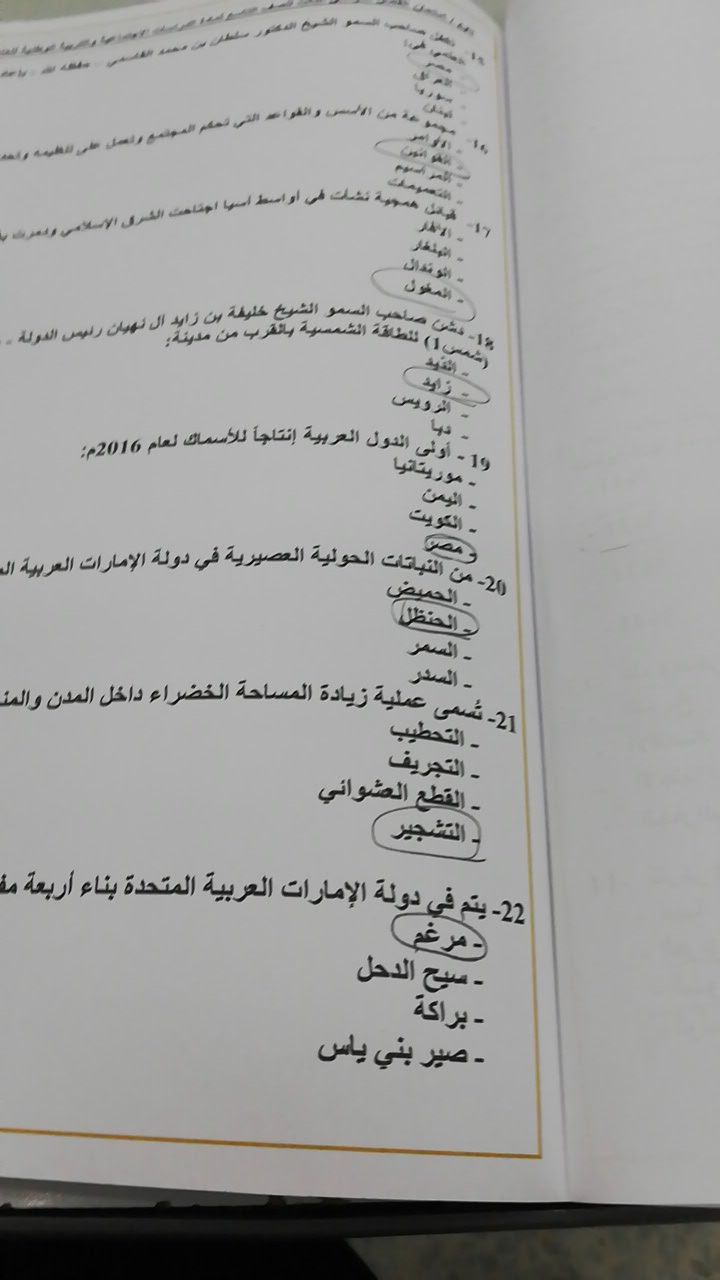 صاحب السمو الشيخ الدكتور سلطان بن محمد القاسمي - حفظه الله -
- مصر
- العراق
- سوريا
- لبنان
16- مجموعة من الأسس والقواعد التي تحكم المجتمع وتعمل على تنظيمه
- الأوامر
- القوانين
- المراسيم
- التعميمات
17- قبائل همجية نشأت في أواسط آسيا اجتاحت الشرق الإسلامي ودمرت
- الافار
- البلغار
- الوندال
- المغول
18- دشن صاحب السمو الشيخ خليفة بن زايد آل نهيان رئيس الدولة -
(شمس1) للطاقة الشمسية بالقرب من مدينة:
- الذيد
- زايد
- الرويس
- دبا
19- أولى الدول العربية إنتاجاً للأسماك لعام 2016م:
- موريتانيا
- اليمن
- الكويت
- مصر
20- من النباتات الحولية العصيرية في دولة الإمارات العربية
- الحميض
- الحنظل
- السمر
- السدر
21- تُسمى عملية زيادة المساحة الخضراء داخل المدن
- التحطيب
- التجريف
- القطع العشوائي
- التشجير
22- يتم في دولة الإمارات العربية المتحدة بناء أربعة
- مرغم
- سيح الدحل
- براكة
- صير بني ياس